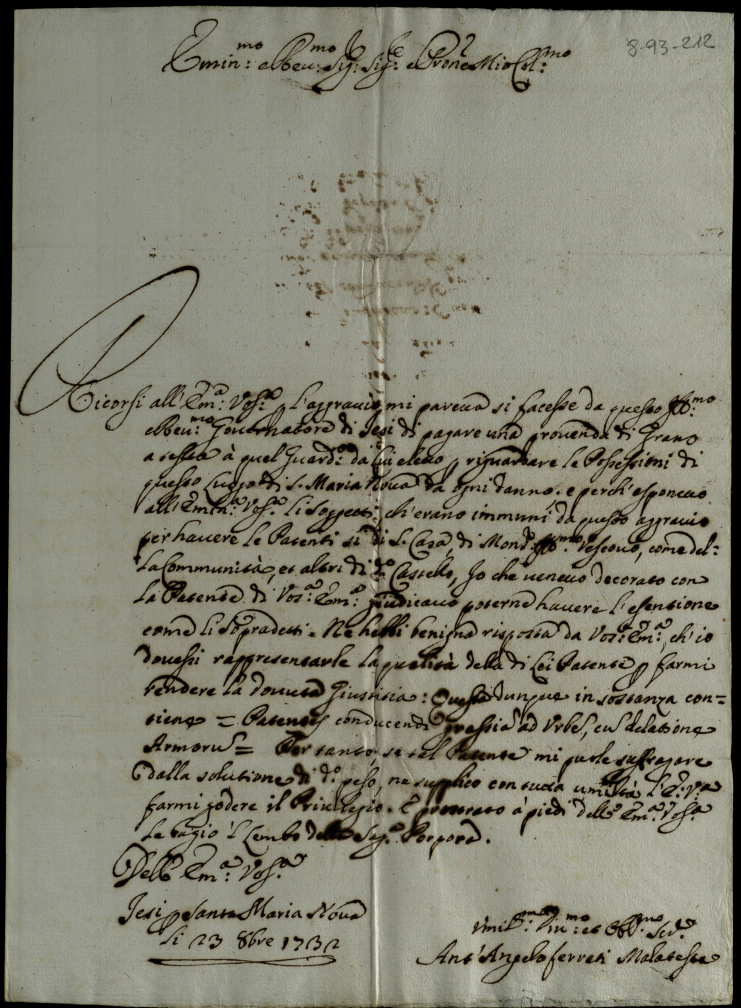 8-93-212
Emin:mo e Reu:mo Sig:re Sig:re e Prone Mio Col:mo
Ricorsi all'Em:a Vos:a p l'aggravio mi pareva si facesse da questo Ill:mo
e Reu:mo Governatore di Jesi di pagare una provenda di Grano
a testa à quel Guard:o da lui eletto p riguardare le Possessioni di
questo luogo di S. Maria Nova da ogni danno. e perch'esponevo
all'Emin:a Vos:a li Soggetti, ch'erano immuni da questo aggravio
per havere le Patenti si di S. Casa, di Mons:r Ill:mo Vescovo, come del-
la Communità, et altri di d:o Castello, Io che venevo decorato con
la Patente di Vos:a Em:a giudicavo poterne havere l'esentione
come li sopradetti. Ne hebbi benigna risposta da Vos:a Em:a, ch'io
dovessi rappresentarle la qualità della di Lei Patente p farmi
rendere la dovuta Giustitia: Questa dunque in sostanza con=
tiene = Patentes conducendi grassia ad Urbe, cu delatione
Armoru = Per tanto, se tal Patente mi puole suffragare
dalla solutione di d:o peso, ne supplico con tutta umiltà l'E:a V:a
farmi godere il Privilegio. E prostrato à piedi dell' Em:a Vos:a
le bagio il Lembo della Sag:a Porpora.
Dell' Em:a Vos:a
Jesi p Santa Maria Nova
li 23 8bre 1732
Umil:mo Diu:mo et Obl:mo Ser:e
Ant'Angelo ferreti Malatesta